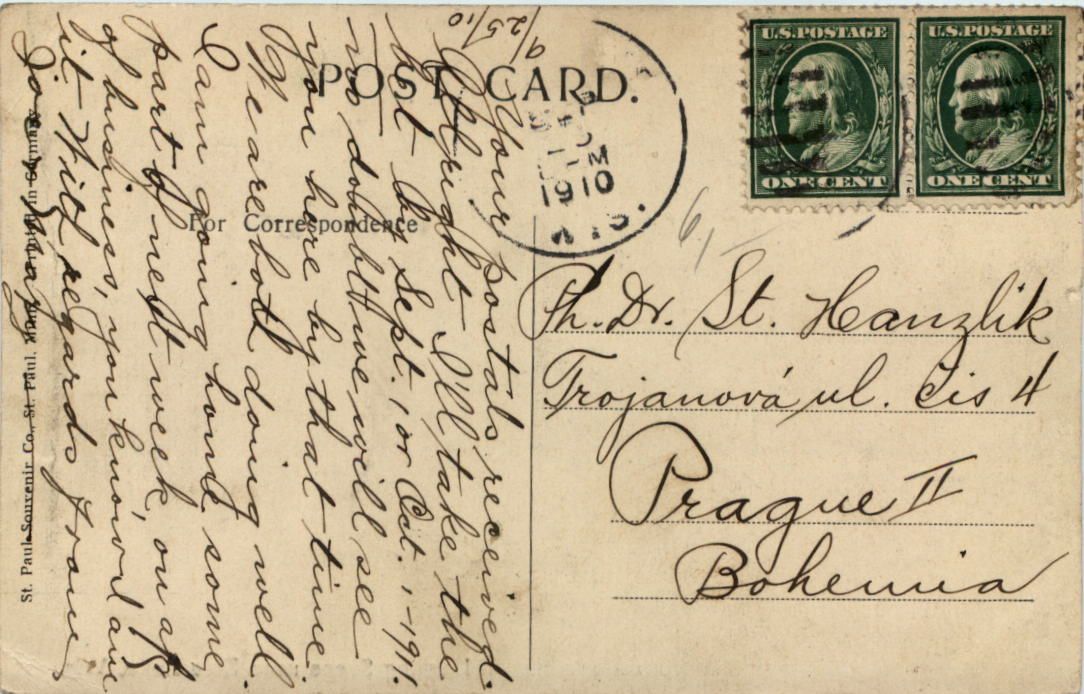 POST CARD.
For Correspondence
9/25/10
Your postals received.
Allright I'll take the
bet by Sept. 1 or Oct. 1-1911.
no dobbt we will see
you here by that time.
We are both doing well.
I am going home some
part of next week, on a/c
of business, you know. and am
it. With regards from
Jos.
St. Paul Souvenir Co., St. Paul, Minn. in Germany
1910
WIS.
U.S. POSTAGE
ONE CENT
U.S. POSTAGE
ONE CENT
6/
Ph. Dr. St. Hanzlik
Trojanová ul. čis 4
Prague II
Bohemia